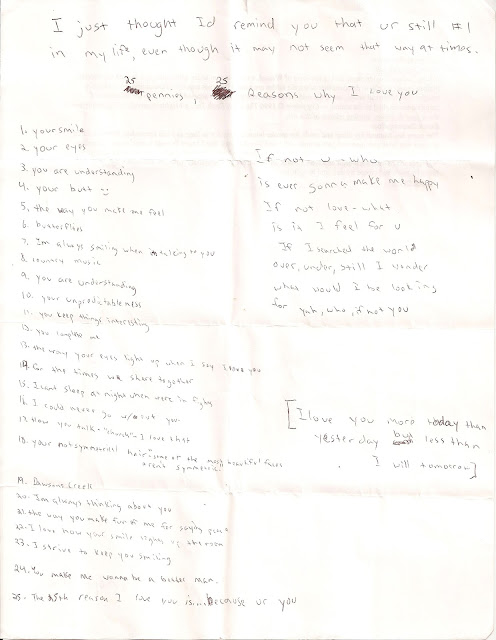 I just thought Id remind you that ur still #1
in my life, even though it may not seem that way at times.
25 pennies, 25 Reasons why I love you
1. your smile
2. your eyes
3. you are understanding
4. your butt :)
5. the way you make me feel
6. butterflies
7. Im always smiling when talking to you
8. country music
9. you are understanding
10. your unpredictableness
11. you keep things interesting
12. you complete me
13. the way your eyes light up when I say I love you
14. for the times we share together
15. I cant sleep at night when were in fights
16. I could never go w/out you
17. How you talk - I love that
18. your not symmetrical hair some of the most beautiful faces
arent symmetrical
19. Dawsons Creek
20. Im always thinking about you
21. the way you make fun of me for saying
22. I love how your smile lights up the room
23. I strive to keep you smiling
24. You make me wanna be a better man.
25. The 25th reason I love you is... because ur you
If not - u - who
is ever gonna make me happy
If not love - what
is is I feel for u
If I searched the world
over, under, still I wonder
what would I be looking
for yah, who, if not you
[I love you more today than
yesterday but less than
I will tomorrow]